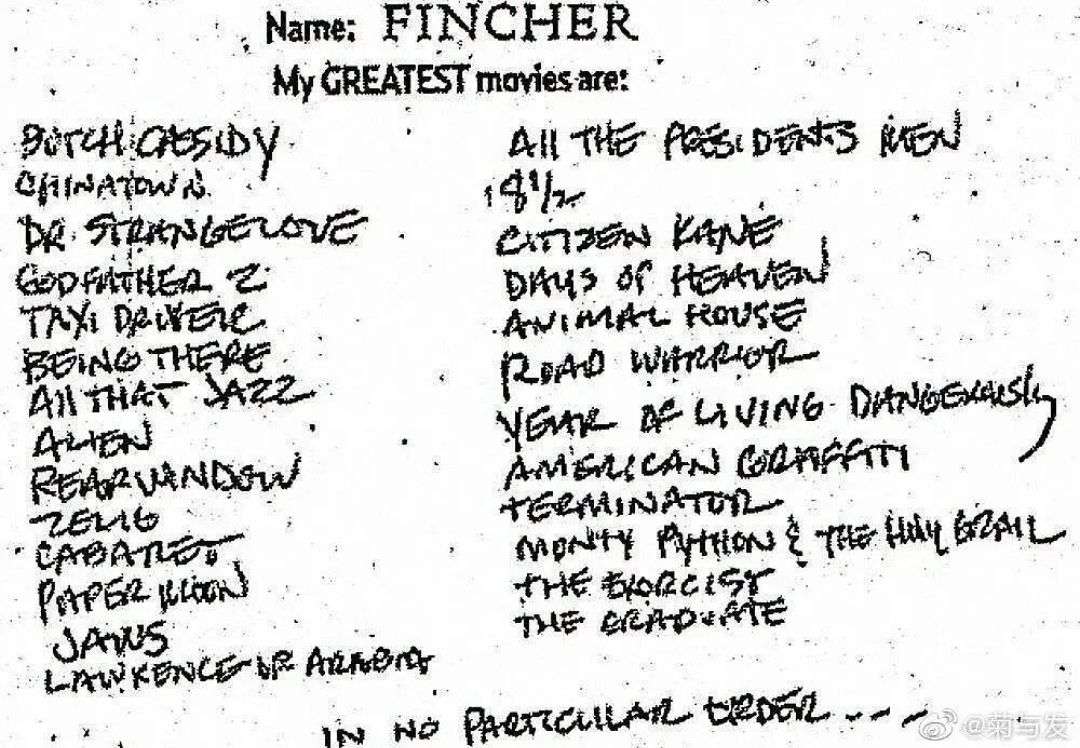 Name: FINCHER
My GREATEST movies are:
BUTCH CASSIDY
CHINATOWN
DR. STRANGELOVE
GODFATHER 2
TAXI DRIVER
BEING THERE
All THAT JAZZ
ALIEN
REAR WINDOW
ZELIG
CABARET
PAPER MOON
JAWS
LAWRENCE OF ARABIA
All THE PRESIDENTS MEN
8 1/2
CITIZEN KANE
DAYS OF HEAVEN
ANIMAL HOUSE
ROAD WARRIOR
YEAR OF LIVING DANGEROUSLY
AMERICAN GRAFFITI
TERMINATOR
MONTY PYTHON & THE HOLY GRAIL
THE EXORCIST
THE GRADUATE
IN NO PARTICULAR ORDER ---
@菊与发